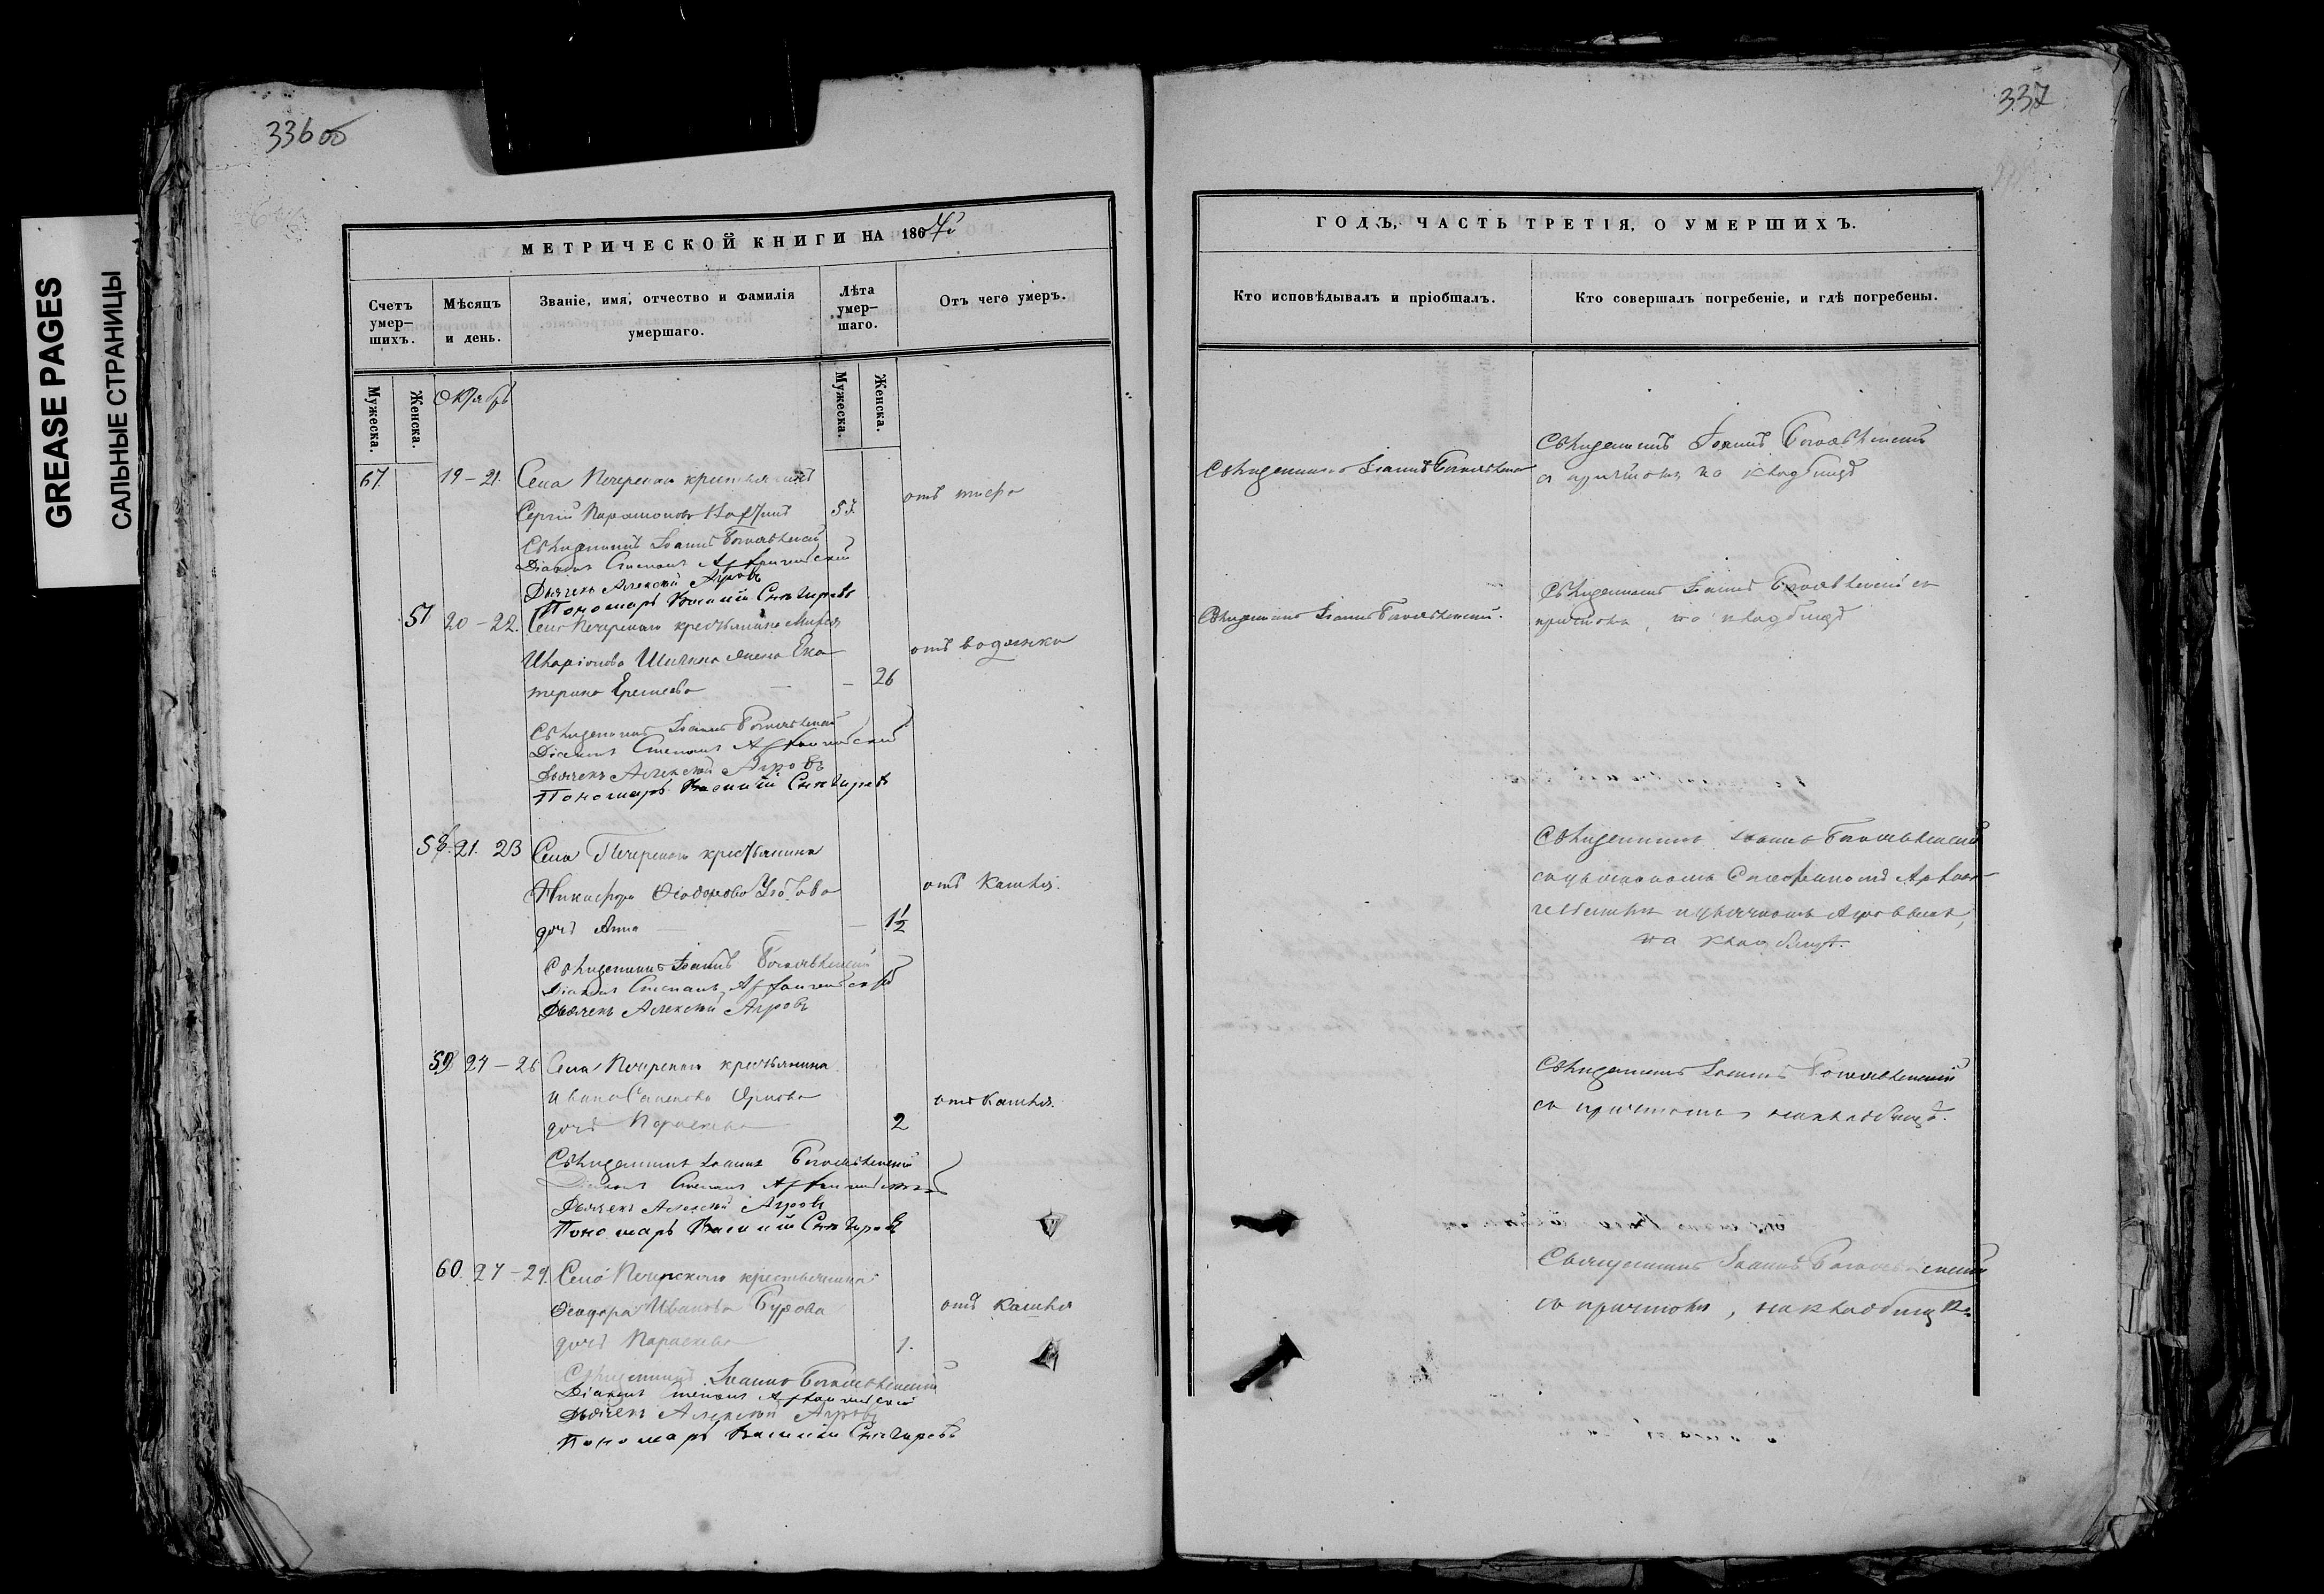 GREASE PAGES
САЛЬНЫЕ СТРАНИЦЫ
336 об
МЕТРИЧЕСКОЙ КНИГИ НА 1867й
Счетъ умер-шихъ.
Мѣсяцъ и день.
Званіе, имя, отчество и фамилія умершаго.
Лѣта умер-шаго.
Отъ чего умеръ.
Мужеска.
Женска.
Октябрь
Мужеска.
Женска.
67. 19-21. Села Печерскаго крестьянинъ
отъ тифа
Сергій Парамоновъ 53.
Священникъ Іоаннъ Богоявленскій
Діаконъ Стефанъ
Дьячекъ Алексій Агровъ
Пономарь Василій Снѣгиревъ
57 20-22. Села Печерскаго крестьянина
Иларіонова жена Ека-
отъ водянки
терина Ермеева 26
Священникъ Іоаннъ Богоявленскій
Діаконъ Стефанъ
Дьячекъ Алексій Агровъ
Пономарь Василій Снѣгиревъ
58. 21. 23 Села Печерскаго крестьянина
Никифора Ѳеодорова
отъ кашля.
дочь Анна 1½
Священникъ Іоаннъ Богоявленскій
Діаконъ Стефанъ
Дьячекъ Алексій Агровъ
59 24-26 Села Печерскаго крестьянина
Ивана
отъ кашля.
дочь Параскева 2
Священникъ Іоаннъ Богоявленскій
Діаконъ Стефанъ
Дьячекъ Алексій Агровъ
Пономарь Василій Снѣгиревъ
60. 27-29. Села Печерскаго крестьянина
Ѳеодора Иванова Бурова
отъ кашля
дочь Параскева 1.
Священникъ Іоаннъ Богоявленскій
Діаконъ Стефанъ
Дьячекъ Алексій Агровъ
Пономарь Василій Снѣгиревъ
337
ГОДЪ, ЧАСТЬ ТРЕТІЯ, О УМЕРШИХЪ.
Кто исповѣдывалъ и пріобщалъ.
Кто совершалъ погребеніе, и гдѣ погребены.
Священникъ Іоаннъ Богоявленскій
Священникъ Іоаннъ Богоявленскій
съ причтомъ на кладбищѣ
Священникъ Іоаннъ Богоявленскій.
Священникъ Іоаннъ Богоявленскій съ
причтомъ, на кладбищѣ
Священникъ Іоаннъ Богоявленскій
съ діакономъ Стефаномъ
и дьячкомъ Агровымъ,
на кладбищѣ.
Священникъ Іоаннъ Богоявленскій
съ причтомъ, на кладбищѣ.
Священникъ Іоаннъ Богоявленскій
съ причтомъ, на кладбищѣ.